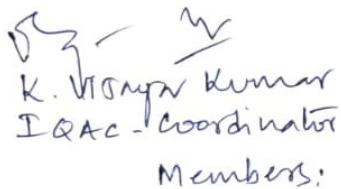 K. Vijaya Kumar
IQAC - Coordinator
Members: